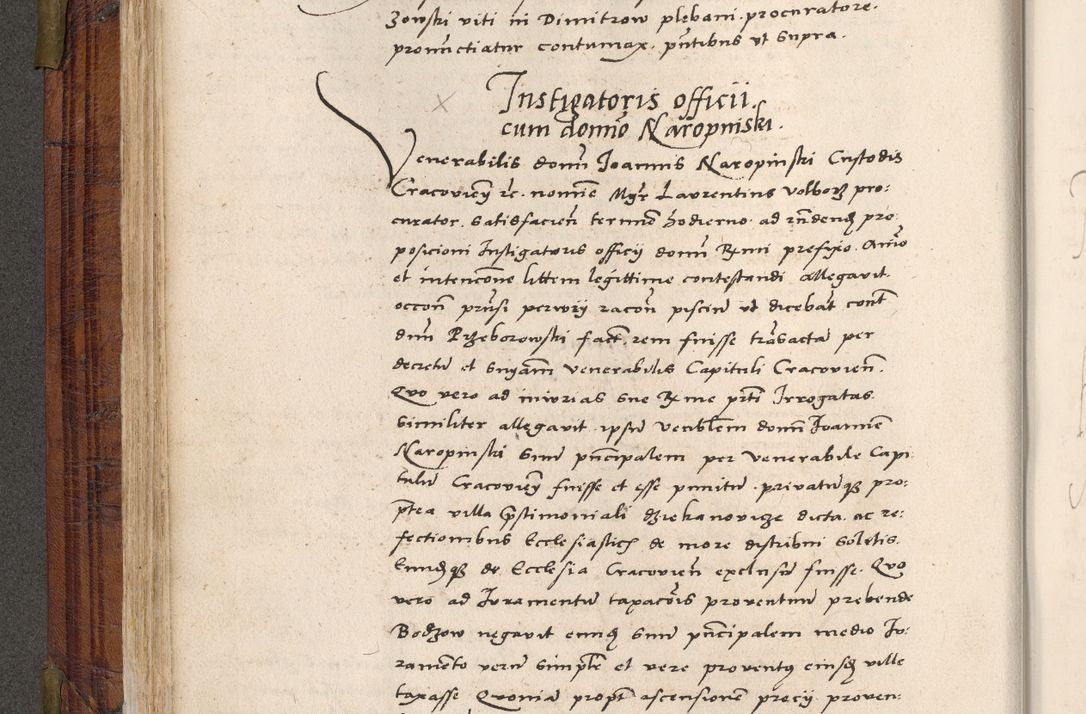 zowski viti in Dimitrow plebani procuratore.
pronūctiatur contumax. pn̄tibus vt supra.
Instigatoris officii
cum domīo Naropinski.
Venerabilis domn̄ Ioannis Naropinski Custodis
Cracovień etc. nomine Mgr̄ Laurentius Volborz pro:
curator. satisfacień termīo hodierno ad rn̄dendū pro
posicioni Instigatoris officij domn̄ Rmi prefixo. Animo
et intencōne littem legittime contestandi allegavit.
occoń prn̄si periurij racoń piscine vt dicebat cont
dnm̄ Przeborowski fact. rem fuisse trāsactā per
decretū et sn̄iam venerabilis Capituli Cracovień.
Quo vero ad iniurias sue Rme prti Irrogatas
similiter allegavit ipsū venblem domn̄ Ioannē
Naropinski suum pn̄cipalem per venerabile Capi
tulū Cracovień fuisse et esse punitū privatūq₃ pro:
ptea villa prestimoniali dziekanovicze dicta. ac re:
fectionibus Ecclesiasticis de more distribui solitis.
Eundēq₃ de Ecclesia Cracovień exclusū fuisse. Quo
vero ad Iuramentū taxacōis proventuū prebende
Bodzow negavit eundē suum pn̄cipalem medio Iu:
ramēto verū simplr̄ et vere proventus eiusdē ville
taxasse Quoniā propt ascensionem precij proven: